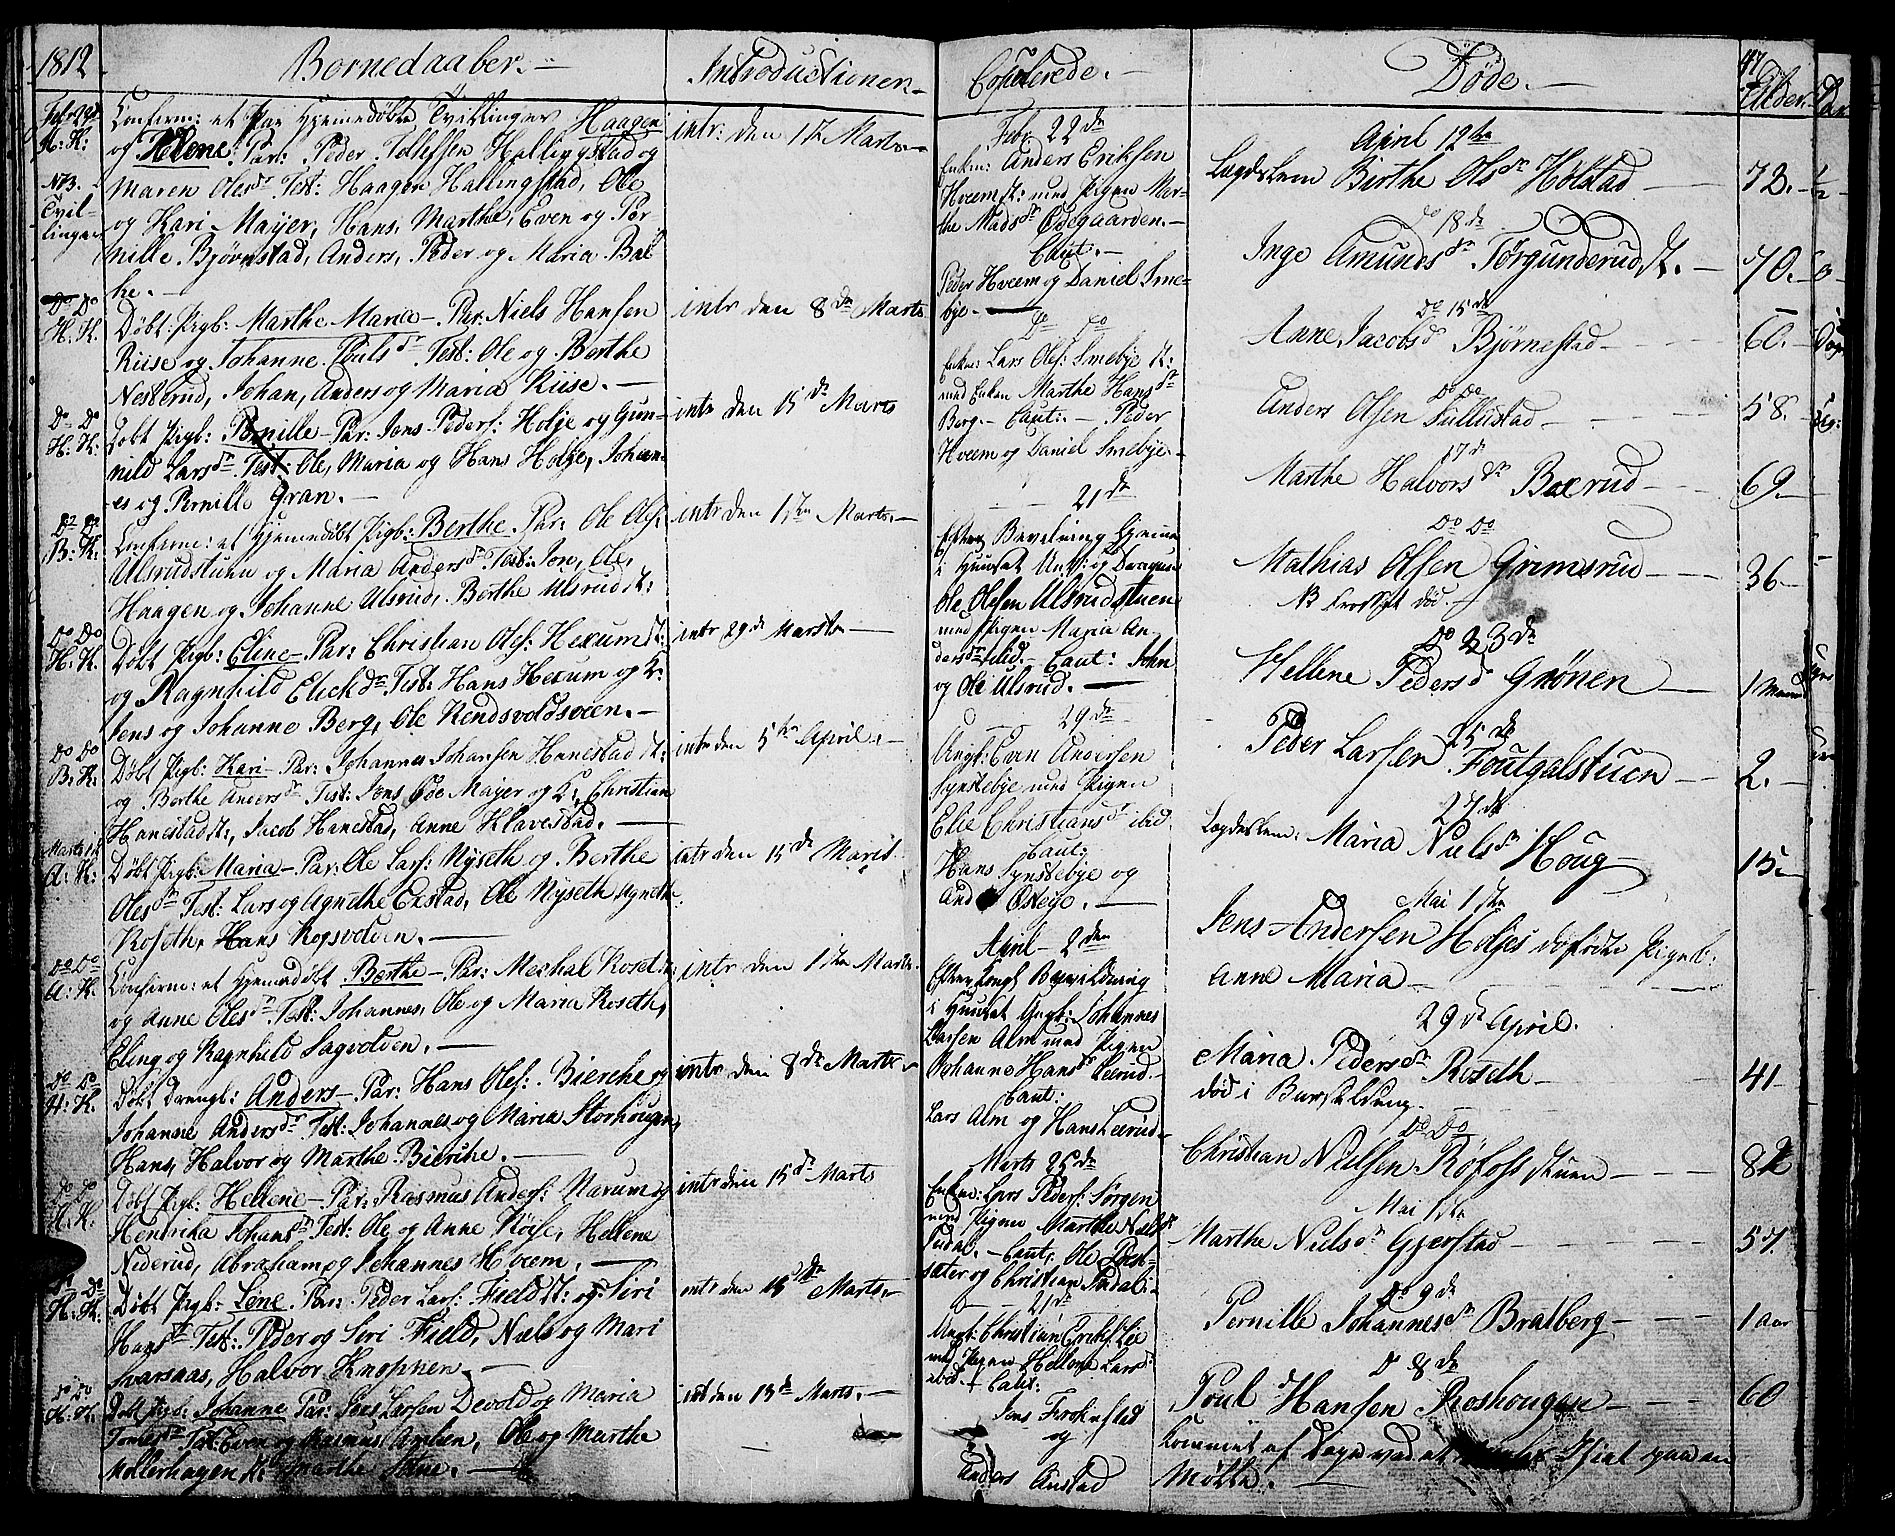 1812.
Bornedaaber.—
Introductioner.
Copulerede.—
Døde.—
Alder
Febr 29de Confirm: et Par Hjemedøbte Tvillinger Haagen
H: K: og Helene. Par: Peder Tollefsen Hallingstad og
NB. Maren Olesdr Test: Haagen Hallingstad, Ole
Tvil- og Kari Mayer, Hans, Marthe, Even og Per
linger nille Bjørnstad, Anders, Peder og Maria Bal
ke.—
intr: den 1ste Marts.—
Do Do Døbt Pigb: Marthe Maria— Par: Niels Hansen
H: K. Riise og Johanne Poulsdr Test: Ole og Berthe
Nesterud, Johan, Anders og Maria Riise.—
intr den 8de Marts
Do Do Døbt Pigb: Pernille— Par: Jens Peders: Holje og Gun-
H: K: nild Larsdr Test: Ole, Maria og Hans Holje, Johan-
es og Pernille Gran.—
intr den 15de Marts
Do Do Confirm: et Hjemedøbt Pigb: Berthe. Par: Ole Ols:
B: K: Ulsrudstuen og Maria Andersdr Test: Jon, Ole,
Haagen og Johanne Ulsrud, Berthe Ulsrud st:
intr den 1ste Marts.—
Do Do Døbt Pigb: Eline— Par: Christian Ols: Hexum st:
H: K. og Ragnhild Erichdr Test: Hans Hexum og K:
Jens og Johanne Berg, Ole Rendsvoldsveen.—
intr 29de Marts—
Do Do Døbt Pigb: Kari— Par: Johannes Johansen Hanestad st:
B: K: og Berthe Andersdr Test: Jens Øde Mayer og K:, Christian
Hanestad st:, Jacob Hanestad, Anne Klavestad.—
intr den 5te April.—
Marts 1ste Døbt Pigb: Maria— Par: Ole Lars: Nyseth og Berthe
A: K: Olesdr Test: Lars og Agnethe Exstad, Ole Nyseth, Agnethe
Roseth, Hans Rogsvolden.—
intr den 15de Marts.
Do Do Confirm: et Hjemedøbt Berthe— Par: Mechal Roset st:
A: K. og Anne Olesdr Test: Johannes, Ole og Maria Roseth,
Eling og Ragnhild Sagvolden.—
intr den 1ste Marts.
Do Do Døbt Drengb: Anders— Par: Hans Oles: Bierche og
H: K. Johanne Andersdr Test: Johannes og Maria Storhougen,
Hans, Halvor og Marthe Bierche.—
intr den 8de Marts
Do Do Døbt Pigb: Hellene— Par: Rasmus Anders: Narum og
H: K. Hendricka Johansdr Test: Ole og Anne Høyse, Hellene
Nederud, Abraham og Johannes Hveem.—
intr den 15de Marts
Do Do Døbt Pigb: Lene. Par: Peder Lars: Field st: og Siri
H: K: Hansdr Test: Peder og Siri Field, Niels og Mari
svarsaas, Halvor Knopnen.—
intr den 15de Marts.—
Do Do Døbt Pigb: Johanne Par: Jens Larsen Devold og Maria
H: K: Test: Even og Rasmus Amlien, Ole og Marthe
Møllerhagen st: Marthe
intr den 15de Marts.—
Febr 22de
Enkm: Anders Eriksen
Hveem st: med Pigen Mar-
the Madsdr Ødegaarden.—
Caut.—
Peder Hveem og Daniel Sme-
bye.—
Do Do
Enkm: Lars Ols: Smebye st:
med Enken Marthe Hansdr
Berg.— Caut:— Peder
Hveem og Daniel Smebye.—
21de
Efter Bevilning Hjemme
i Huuset Ungk: og Dragun
Ole Olesen Ulsrudstuen
med Pigen Maria An-
dersdr ibid.— Caut: John
og Ole Ulsrud.—
29de
Ungk: Even Andersen
Synstebye med Pigen
Elie Christiansdr ibid.
Caut:
Hans Synstebye og
And Østbye.—
April 2den
Efter kongl Bevilning
i Huuset Ungk: Johannes
Larsen Alm med Pigen
Johanne Hansdr Leerud.—
Caut:
Lars Alm og Hans Leerud.
Marts 25de
Enkm: Lars Peders: Sorgen
med Pigen Marthe Nielsdr
Sudal.— Caut: Ole Post-
sæter og Christian Sudal.—
21de
Ungk: Christian Eriks: Lie
med Pigen Hellene Larsdr
ibid.— Caut:
Jens Frokinstad
og
Anders Anstad
April 12te
Lægdslem Birthe Olsdr Holstad — 72.—
Do 18de
Inge Amundsdr Torgunderud st.— 70.—
Do 15de
Anne Jacobsdr Bjørnestad — 60.—
Do Do
Anders Olsen Sullustad — 58.—
17de
Marthe Halvorsdr Boxrud — 69.—
Do Do
Mathias Olsen Grimsrud — 36—
NB Krosset død.—
Do 23de
Hellene Pedersdr Grønen — 1 Maan
25de
Peder Larsen Foutgalstuen — 2.—
27de
Lægdslem: Maria Nielsdr Houg 15—
Mai 1ste
Jens Andersen Holjes dødfødte Pigeb:
Anne Maria—
29de April.
Maria Pedersdr Roseth — 41—
død i Barselseng.
Do Do
Christian Nielsen Røfoss stuen — 82
Mai 1ste
Marthe Nielsdr Gjerstad — 57
Do 9de
Pernille Johannesdr Bratberg — 1 aar
D 8de
Poul Hansen Roshougen — 60
Kommet af Dage ved et Hjul paa en
Mølle.—